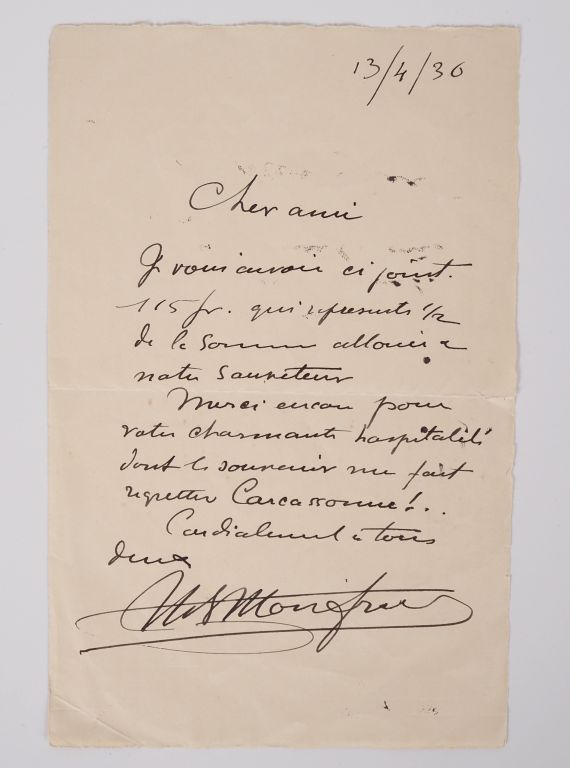 13/4/36
Cher ami
Je vous envoie ci joint.
115 fr. qui represente 1/2
de la somme allouée a
notre sauveteur
Merci encore pour
votre charmante hospitalité
dont le souvenir me fait
regretter Carcassonne!..
Cordialement a tous
deux